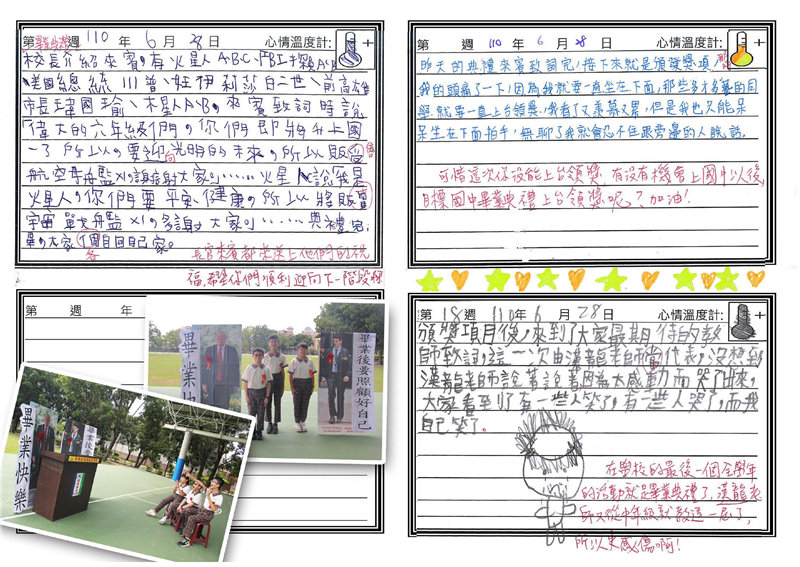 第畢業典禮週 110 年 6 月 28 日 心情溫度計: +
校長介紹來賓,有火星人A、B、C、
美國總統川普、女王伊莉莎白二世、前高雄
市長瑋國瑜、木星人A、B。來賓致詞時說
「偉大的六年級們,你們即將升上國
一了所以,要迎向光明的未來,所以販賣
航空母艦X1,謝謝大家」……火星人說「我是
火星人,你們要平安、健康,所以……將販賣
宇宙單大母艦X1,多謝大家」……典禮完
畢,大家各個自回自己家。
長官來賓都來送上他們的祝
福,希望你們順利迎向下一階段
第 週 110 年 6 月 28 日 心情溫度計: +
昨天的典禮來賓致詞完,接下來就是頒發獎項,
我的頭痛了一下!因為我就要一直坐在下面,那些多才多藝的同
學就要一直上台領獎,我看了又羨慕又累,但是我也只能呆
呆坐在下面拍手,無聊了我就會忍不住跟旁邊的人說話。
可惜這次你沒能上台領獎,有沒有機會上國中以後,
目標國中畢業典禮上台領獎呢?加油!
第 週 年
畢業快樂
畢業後要照顧好自己
畢業快樂
第18週 110年 6 月 28 日 心情溫度計: +
頒獎項目後,來到了大家最期待的教
師致詞,這一次由漢龍老師當代表,沒想到
漢龍老師說著說著因為太感動而哭了出來,
大家看到了有一些人笑了,有一些人哭了,而我
自己笑了。
在學校的最後一個全學年
的活動就是畢業典禮了,漢龍老
師又從中年級就教這一屆了,
所以更感傷啊!